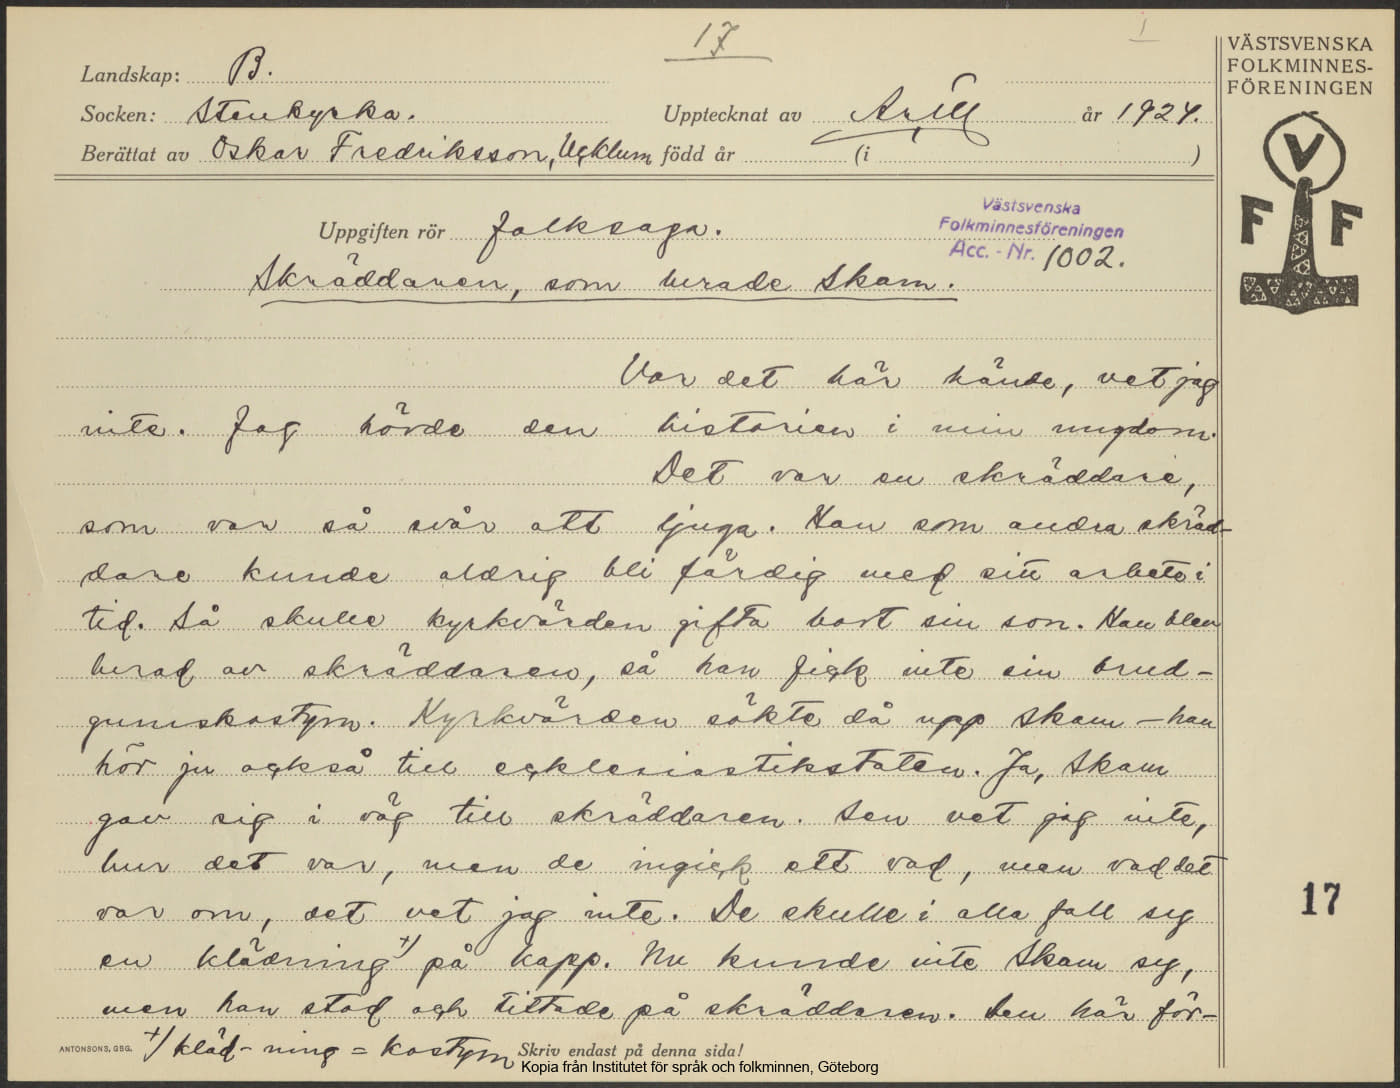 17
1
VÄSTSVENSKA
FOLKMINNES-
FÖRENINGEN
V
F F
Landskap: B.
Socken: Stenkyrka. Upptecknat av år 1924.
Berättat av Oskar Fredriksson, Ucklum född år (i )
Uppgiften rör folksaga.
Västsvenska
Folkminnesföreningen
Acc. - Nr. 1002.
Skräddaren, som lurade Skam.
Var det här hände, vet jag
inte. Jag hörde den historien i min ungdom.
Det var en skräddare,
som var så svår att ljuga. Han som andra skräd-
dare kunde aldrig bli färdig med sitt arbete i
tid. Så skulle kyrkvärden gifta bort sin son. Han blev
lurad av skräddaren, så han fick inte sin brud-
gumskostym. Kyrkvärden sökte då upp Skam – han
hör ju också till ecklesiastikstaten. Ja, Skam
gav sig i väg till skräddaren. Sen vet jag inte,
hur det var, men de ingick ett vad, men vad det
var om, det vet jag inte. De skulle i alla fall sy
en klädning +) på kapp. Nu kunde inte Skam sy,
men han stod och tittade på skräddaren. Den här för-
+) kläd-ning = kostym
ANTONSONS, GBG. Skriv endast på denna sida!
17
Kopia från Institutet för språk och folkminnen, Göteborg